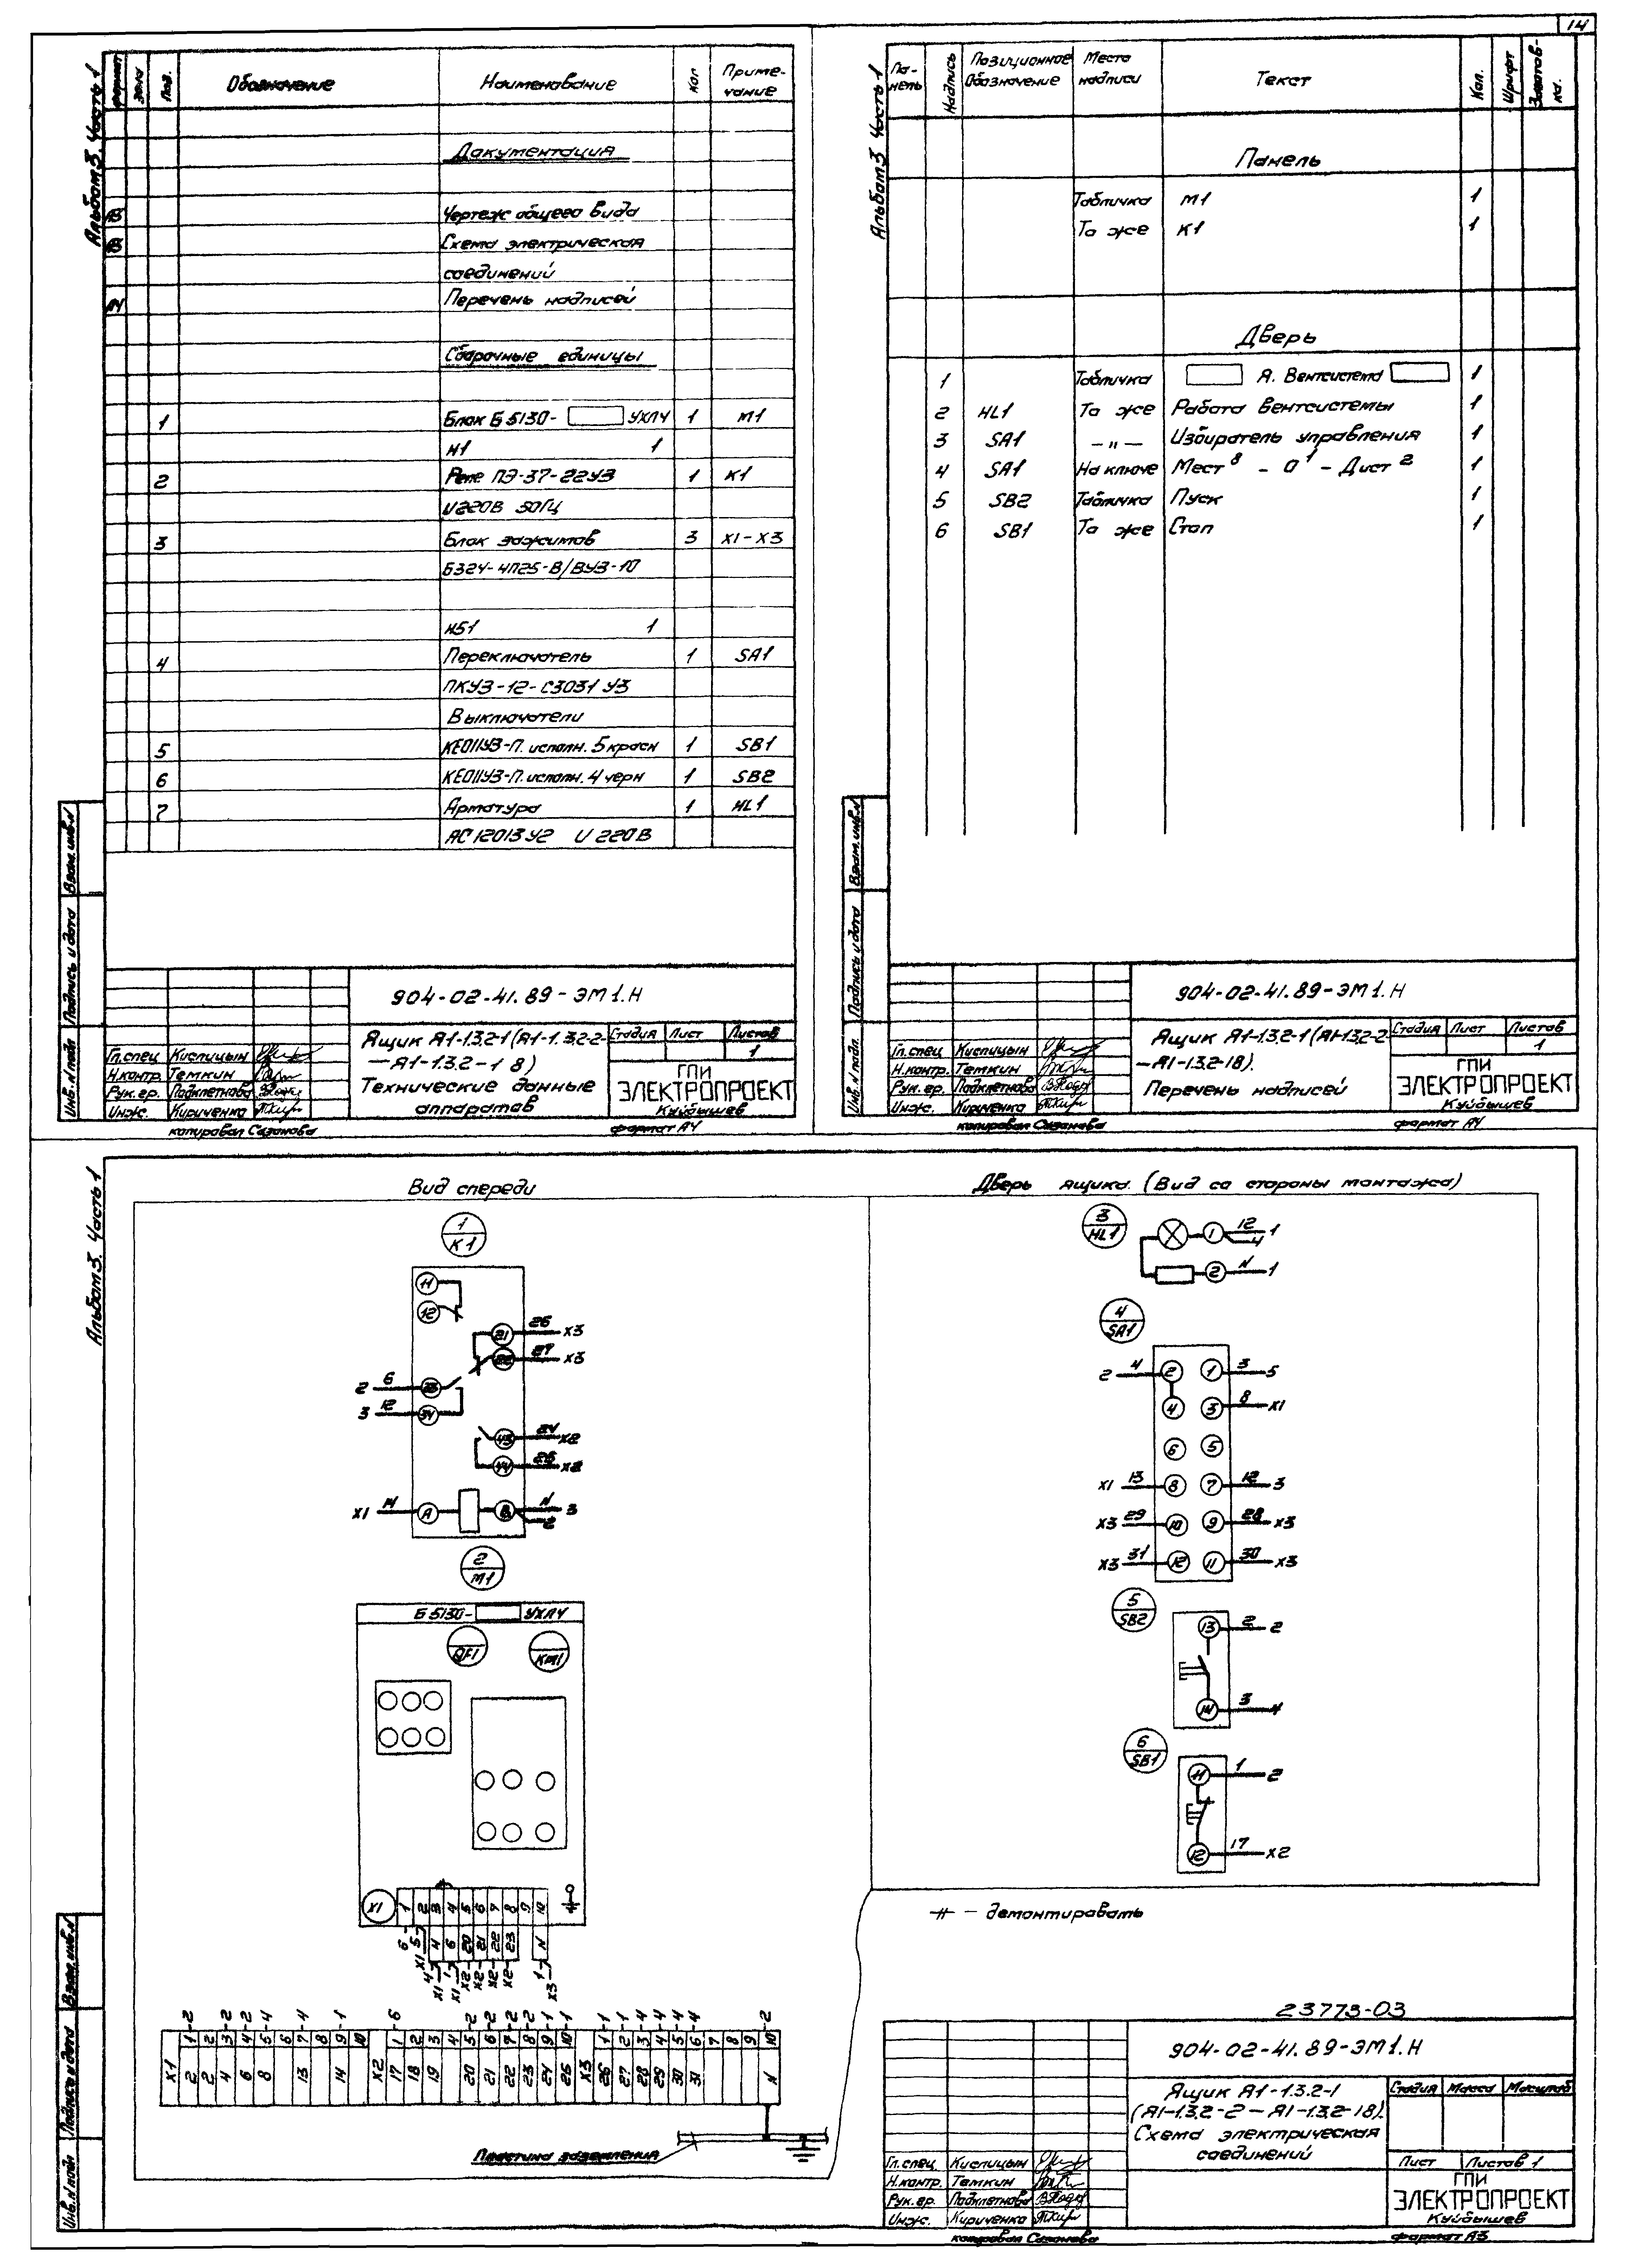 14
Альбом 3. Часть 1
формат Зона Поз. Обозначение Наименование Кол Приме-чание
Документация
А3 Чертеж общего вида
А3 Схема электрическая
соединений
А4 Перечень надписей
Сборочные единицы
1 Блок Б 5130- УХЛ4 1 М1
Н1 1
2 Реле ПЭ-37-22У3 1 К1
U 220В 50Гц
3 Блок зажимов 3 Х1-Х3
Б324-4П25-В/ВУ3-10
Н51 1
4 Переключатель 1 SA1
ПКУ3-12-С3031 У3
Выключатели
5 КЕ011У3-П. исполн. 5 красн 1 SB1
6 КЕ011У3-П. исполн. 4 черн 1 SB2
7 Арматура 1 HL1
АС12013У2 U 220В
Взам. инв. N
Подпись и дата
Инв. N подл
904-02-41.89-ЭМ1.Н
Ящик Я1-1.3.2-1 (Я1-1.3.2-2-
—Я1-1.3.2-18)
Технические данные
аппаратов
Стадия Лист Листов
1
ГПИ
ЭЛЕКТРОПРОЕКТ
Куйбышев
Гл. спец Кислицын
Н.контр. Темкин
Рук. гр. Подклетнова
Инж. Кириченко
копировал Сазанова
формат А4
Альбом 3 Часть 1
Па-нель Надпись Позиционное Обозначение Место надписи Текст Кол. Шрифт Заготов-ка.
Панель
Табличка М1 1
То же К1 1
Дверь
1 Табличка Я. Вентсистема 1
2 HL1 То же Работа вентсистемы 1
3 SA1 —"— Избиратель управления 1
4 SA1 На ключе Мест 8 - 0 1 - Дист 2 1
5 SB2 Табличка Пуск 1
6 SB1 То же Стоп 1
Взам. инв. N
Подпись и дата
Инв. N подл.
904-02-41.89-ЭМ1.Н
Ящик Я1-1.3.2-1 (Я1-1.3.2-2-
—Я1-1.3.2-18).
Перечень надписей
Стадия Лист Листов
1
ГПИ
ЭЛЕКТРОПРОЕКТ
Куйбышев
Гл. спец Кислицын
Н.контр. Темкин
Рук. гр. Подклетнова
Инж. Кириченко
копировал Сазанова
формат А4
Альбом 3. Часть 1
Вид спереди
1
К1
11
12
21 26 Х3
22 27 Х3
2 6 33
3 12 34
43 24 Х2
44 25 Х2
Х1 14 А В N 3
2
2
М1
Б 5130- УХЛ4
QF1 КМ1
Х1 1 2 3 4 5 6 7 8 9 10
4 6 20 21 22 23 N
Х1 1 2 3 4 5 6 7 8 9 10
2 2 4 6 8 13 14
Х2 1 2 3 4 5 6 7 8 9 10
17 18 19 20 21 22 23 24 25
Х3 1 2 3 4 5 6 7 8 9 10
26 27 28 29 30 31 N
Пластина заземления
Дверь ящика. (Вид со стороны монтажа)
3
HL1
1 12 1
4
2 N 1
4
SA1
2 4 2 1 3 5
4 3 8 Х1
6 5
Х1 13 8 7 12 3
Х3 29 10 9 28 Х3
Х3 31 12 11 30 Х3
5
SB2
13 2 2
14 3 4
6
SB1
11 1 2
12 17 Х2
— демонтировать
23773-03
904-02-41.89-ЭМ1.Н
Ящик Я1-1.3.2-1
(Я1-1.3.2-2 — Я1-1.3.2-18).
Схема электрическая
соединений
Стадия Масса Масштаб
Лист Листов 1
ГПИ
ЭЛЕКТРОПРОЕКТ
Куйбышев
Гл. спец Кислицын
Н.контр. Темкин
Рук. гр. Подклетнова
Инж. Кириченко
Взам. инв. N
Подпись и дата
Инв. N подл
копировал Сазанова
формат А3